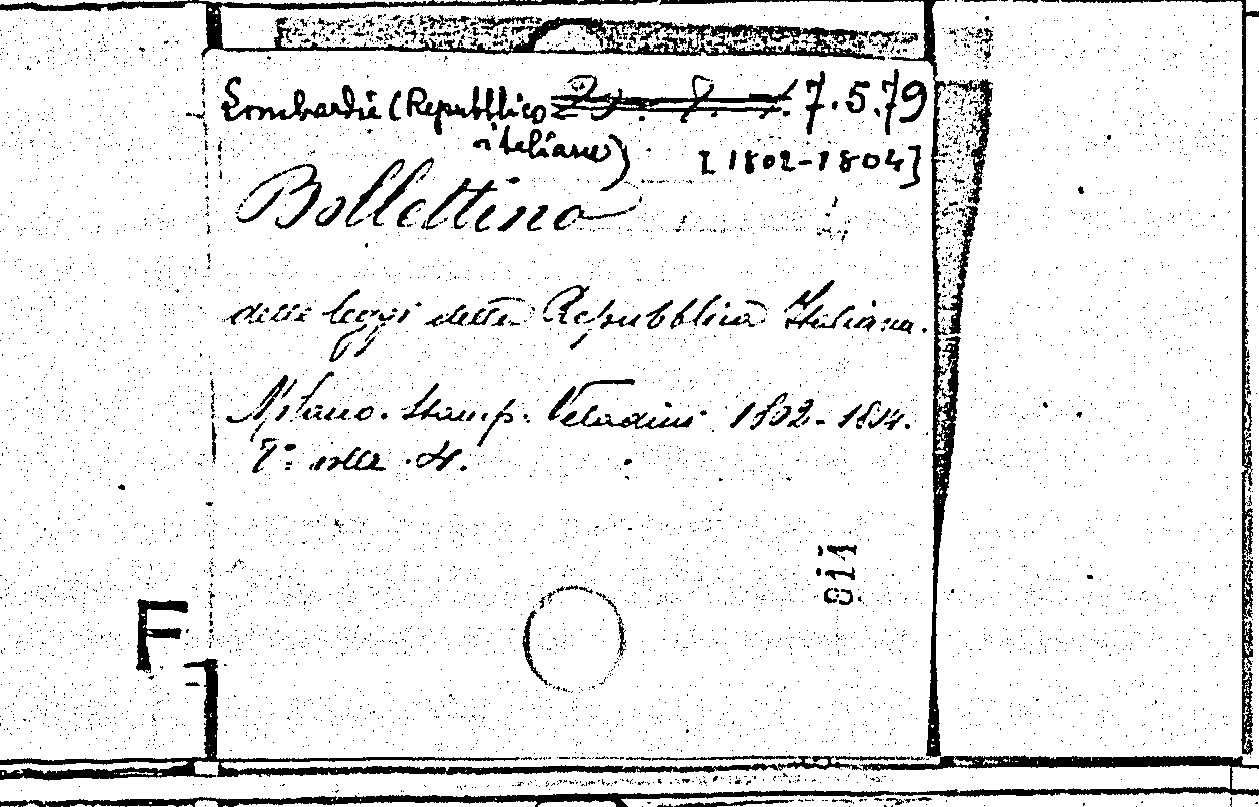 Lombardie (Repubblica 7.5.79
italiana) [1802-1804]
Bollettino
delle leggi della Repubblica Italiana.
Milano. Stamp. Veladini 1802-1814.
7: voll. 4.
011
F